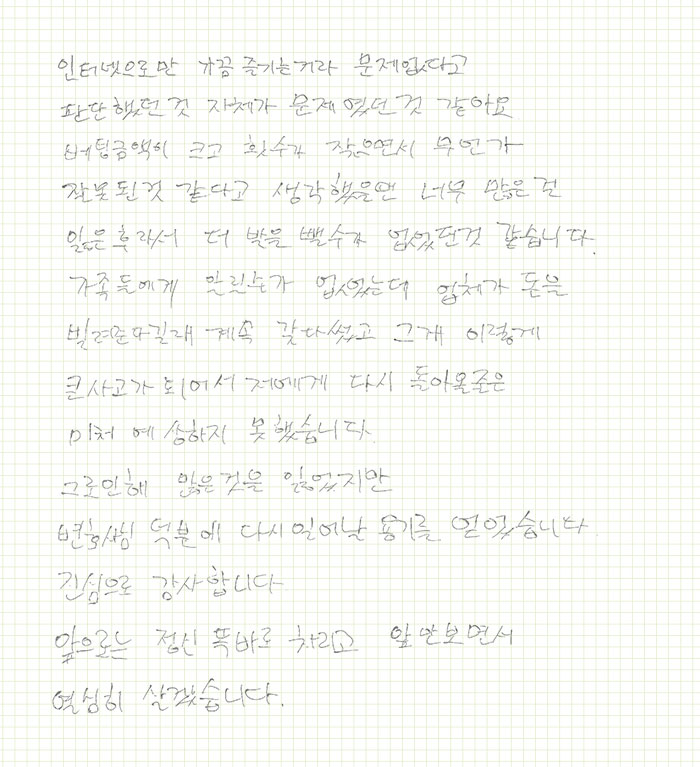 인터넷으로만 가끔 즐기는거라 문제없다고
판단했던것 자체가 문제였던것 같아요
베팅금액이 크고 횟수가 작으면서 무언가
잘못된것 같다고 생각했을땐 너무 많은걸
잃은후라서 더 발을 뺄수가 없었던것 같습니다.
가족들에게 알릴수가 없었는데 업체가 돈을
빌려준다길래 계속 갖다썼고 그게 이렇게
큰사고가 되어서 저에게 다시 돌아올줄은
미처 예상하지 못했습니다.
그로인해 많은것을 잃었지만
변호사님 덕분에 다시일어날 용기를 얻었습니다
진심으로 감사합니다
앞으로는 정신 똑바로 차리고 앞만보면서
열심히 살겠습니다.